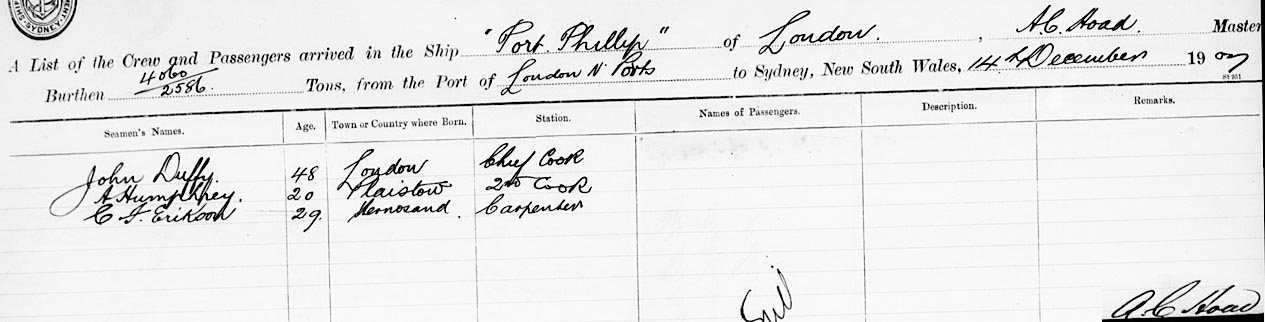 MENT · SHIP
SYDNEY
A List of the Crew and Passengers arrived in the Ship "Port Phillip" of London. , A.C. Hoad. Master
Burthen 4060/2586. Tons, from the Port of London N Ports to Sydney, New South Wales, 14th December 1907
St 951
Seamen's Names. Age. Town or Country where Born. Station. Names of Passengers. Description. Remarks.
John Duffy. 48 London Chief Cook
A Humphrey. 20 Plaistow 2nd Cook
C F. Erikson 29. Hernosand. Carpenter
A. C. Hoad